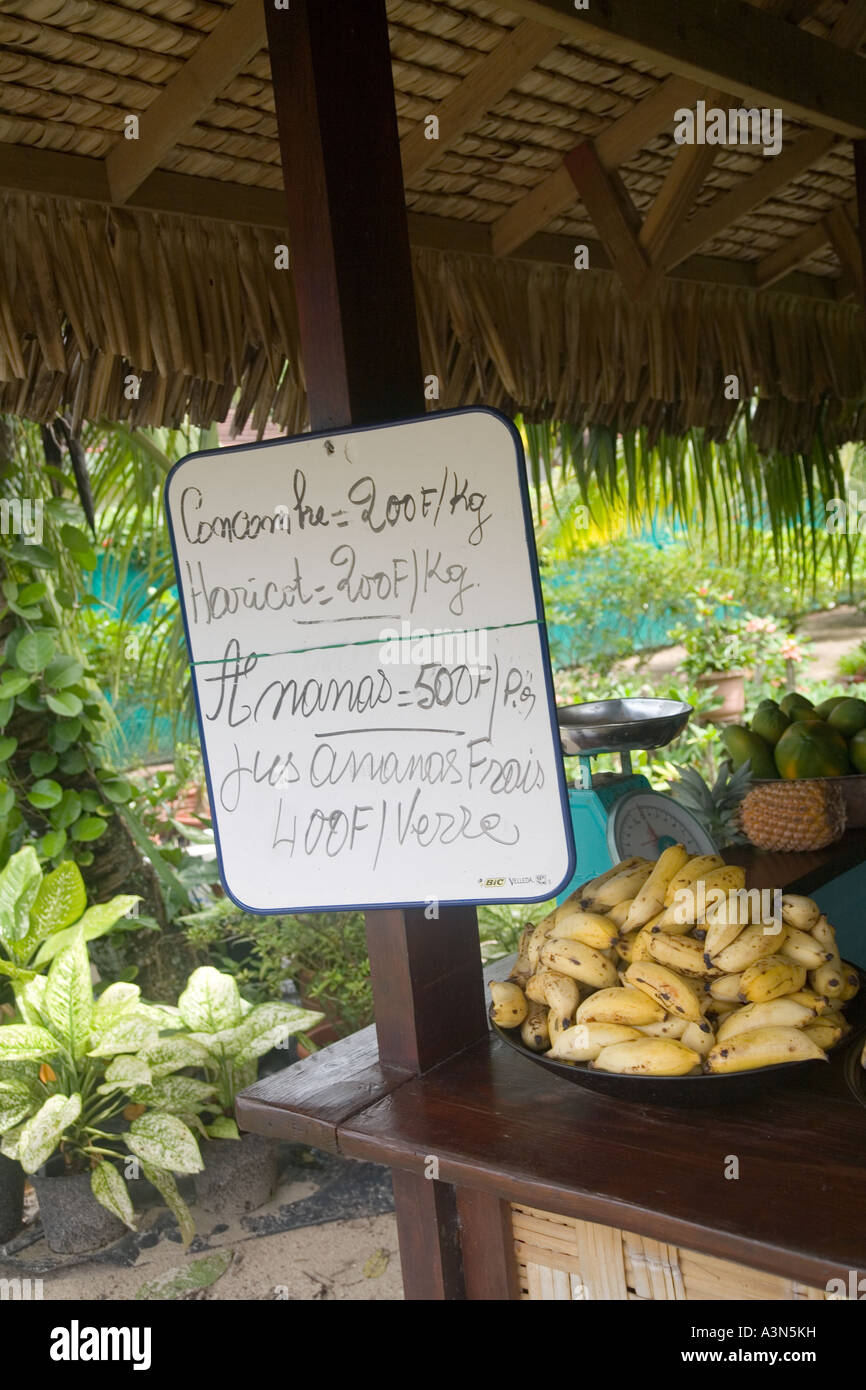 Concombre = 200F/Kg
Haricot = 200F/Kg.
Ananas = 500F/
Jus ananas Frais
400F/Verre
BIC VELLEDA
alamy
www.alamy.com
A3N5KH